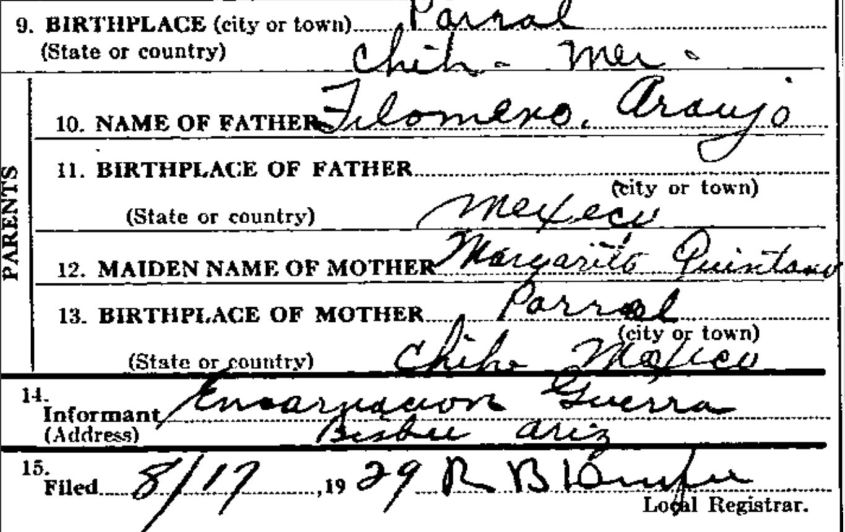 9. BIRTHPLACE (city or town) Parral
(State or country) Chih - Mex -
PARENTS
10. NAME OF FATHER Filomeno. Araujo
11. BIRTHPLACE OF FATHER
(city or town)
(State or country) Mexico
12. MAIDEN NAME OF MOTHER Margarito Quintano
13. BIRTHPLACE OF MOTHER Parral
(city or town)
(State or country) Chih Mexico
14.
Informant Encarnacion Guerra
(Address) Bisbee Ariz
15.
Filed 8/17, 1929 R B
Local Registrar.